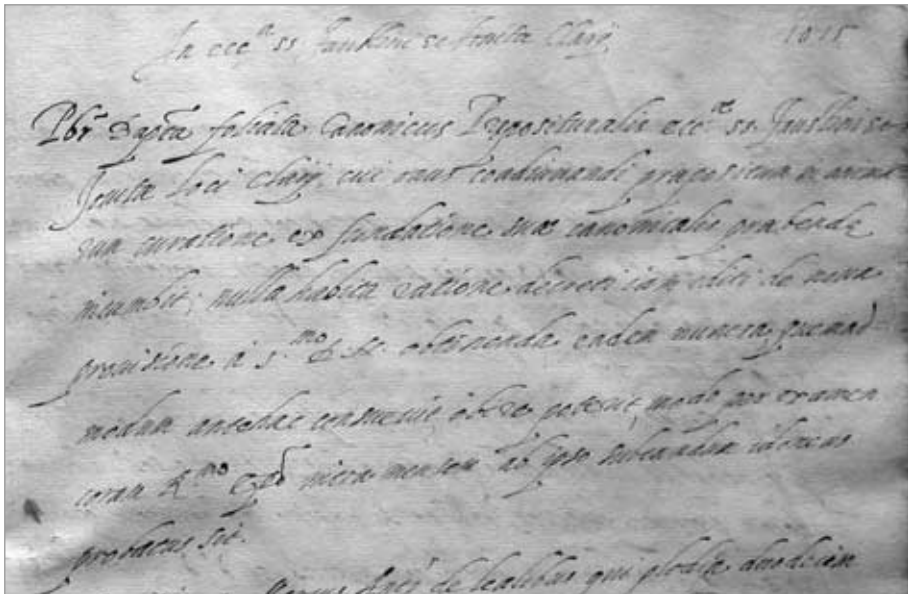 In ecc.a ss. Faustini et Jovitæ Clarij 1015
Pbr Bapta folcata Canonicus Præposituralis ecc.æ ss. Faustini et
Jovitæ loci Clarij, cui onus coadiuuandi præpositum in anima
rum curatione ex fundatione suæ canonicalis præbendę
incumbit; nulla habita ratione decreti iam editi de noua
prouisione à s.mo D. N. obtinenda eadem munera quemad
modum antehac consueuit obire poterit, modo per examen
coram R.mo intra mensem ab ipso subeundum idoneus
probatus sit.
de lealibus qui plodia duodecim